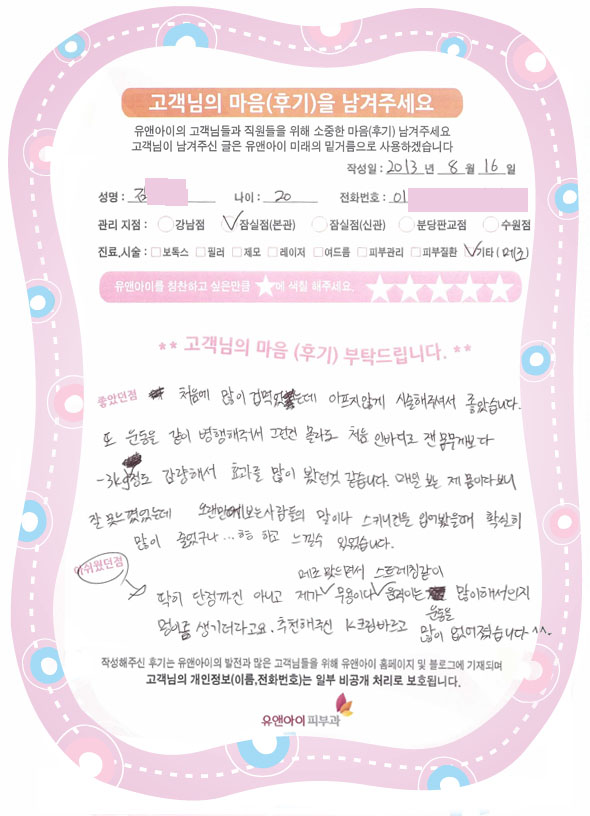 고객님의 마음(후기)을 남겨주세요
유앤아이의 고객님들과 직원들을 위해 소중한 마음(후기) 남겨주세요
고객님이 남겨주신 글은 유앤아이 미래의 밑거름으로 사용하겠습니다
작성일 : 2013 년 8 월 16 일
성명 : 김 나이 : 20 전화번호 : 01
관리 지점 : 강남점 잠실점(본관) 잠실점(신관) 분당판교점 수원점
진료,시술 : 보톡스 필러 제모 레이저 여드름 피부관리 피부질환 기타 (메조)
유앤아이를 칭찬하고 싶은만큼 ★에 색칠 해주세요. ★★★★★
** 고객님의 마음 (후기) 부탁드립니다. **
좋았던점 처음에 많이 겁먹었는데 아프지않게 시술해주셔서 좋았습니다.
또 운동을 같이 병행해줘서 그런건 몰라도 처음 인바디로 잰 몸무게보다
-3kg정도 감량해서 효과를 많이 봤던것 같습니다. 매일 보는 제 몸이다보니
잘 못느꼈었는데 오랜만에보는사람들의 말이나 스키니진을 입어봤을때 확실히
많이 줄었구나... 하고 느낄수 있었습니다.
아쉬웠던점
메조 맞으면서 스트레칭같이
딱히 단점까진 아니고 제가 무용이나 움직이는 많이해서인지
운동을
멍이좀 생기더라고요. 추천해주신 K크림바르고 많이 없어졌습니다 ^^.
작성해주신 후기는 유앤아이의 발전과 많은 고객님들을 위해 유앤아이 홈페이지 및 블로그에 기재되며
고객님의 개인정보(이름,전화번호)는 일부 비공개 처리로 보호됩니다.
유앤아이피부과